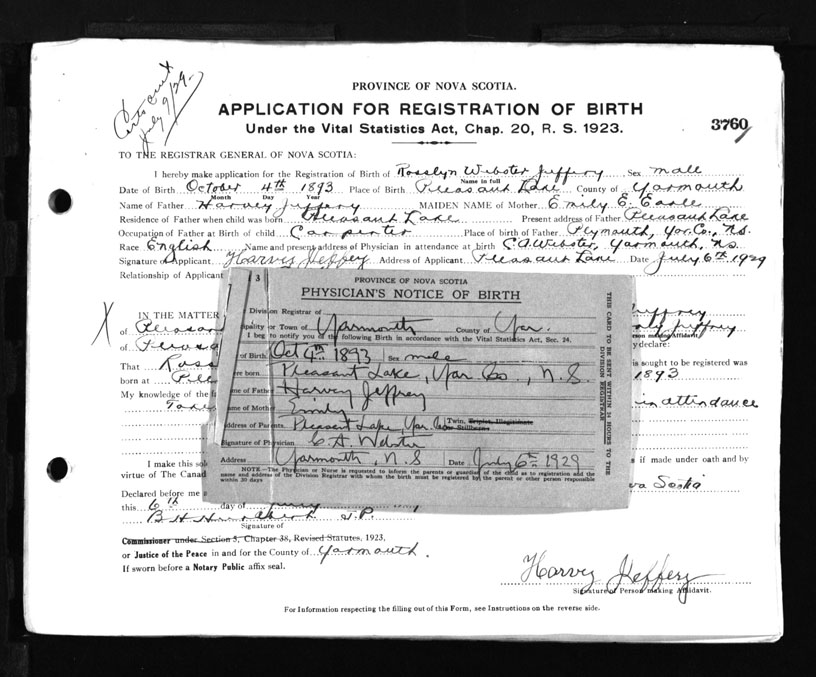 Certs cent
July 9/29
PROVINCE OF NOVA SCOTIA.
APPLICATION FOR REGISTRATION OF BIRTH
Under the Vital Statistics Act, Chap. 20, R. S. 1923.
3760
TO THE REGISTRAR GENERAL OF NOVA SCOTIA:
I hereby make application for the Registration of Birth of Rosslyn Webster Jeffery, Sex male
Name in full
Date of Birth October 4th 1893 Place of Birth Pleasant Lake County of Yarmouth
Month Day Year
Name of Father Harvey Jeffery MAIDEN NAME of Mother Emily E. Earle
Residence of Father when child was born Pleasant Lake Present address of Father Pleasant Lake
Occupation of Father at Birth of child Carpenter Place of birth of Father Plymouth, Yar. Co., N.S.
Race English Name and present address of Physician in attendance at birth C.A. Webster, Yarmouth, N.S.
Signature of Applicant Harvey Jeffery Address of Applicant Pleasant Lake Date July 6th 1929
Relationship of Applicant
IN THE MATTER
of Pleasan
of
That Ross
born at Ple
My knowledge of the fa
Take
I make this sol
virtue of The Canad
Declared before me a
this 6th day of
J.P.
Signature of
Commissioner under Section 3, Chapter 38, Revised Statutes, 1923,
or Justice of the Peace in and for the County of Yarmouth.
If sworn before a Notary Public affix seal.
3
PROVINCE OF NOVA SCOTIA
PHYSICIAN'S NOTICE OF BIRTH
Division Registrar of
ipality or Town of Yarmouth County of Yar.
I beg to notify you of the following Birth in accordance with the Vital Statistics Act, Sec. 24.
of Birth Oct 4th 1893 Sex male
ere born Pleasant Lake, Yar Co., N.S.
me of Father Harvey Jeffrey
ame of Mother Emily
ddress of Parents Pleasant Lake, Yar. Co Twin, Triplet, Illegitimate
or Stillborn
Signature of Physician C A. Webster
Address Yarmouth, N.S Date July 6th 1929
NOTE—The Physician or Nurse is requested to inform the parents or guardian of the child as to registration and the
name and address of the Division Registrar with whom the birth must be registered by the parent or other person responsible
within 30 days
THIS CARD TO BE SENT WITHIN 24 HOURS TO THE
DIVISION REGISTRAR
Jeffrey
Jeffrey
son making Affidavit.
y declare:
is sought to be registered was
1893
in attendance
s if made under oath and by
va Scotia
Harvey Jeffery
Signature of Person making Affidavit.
For Information respecting the filling out of this Form, see Instructions on the reverse side.